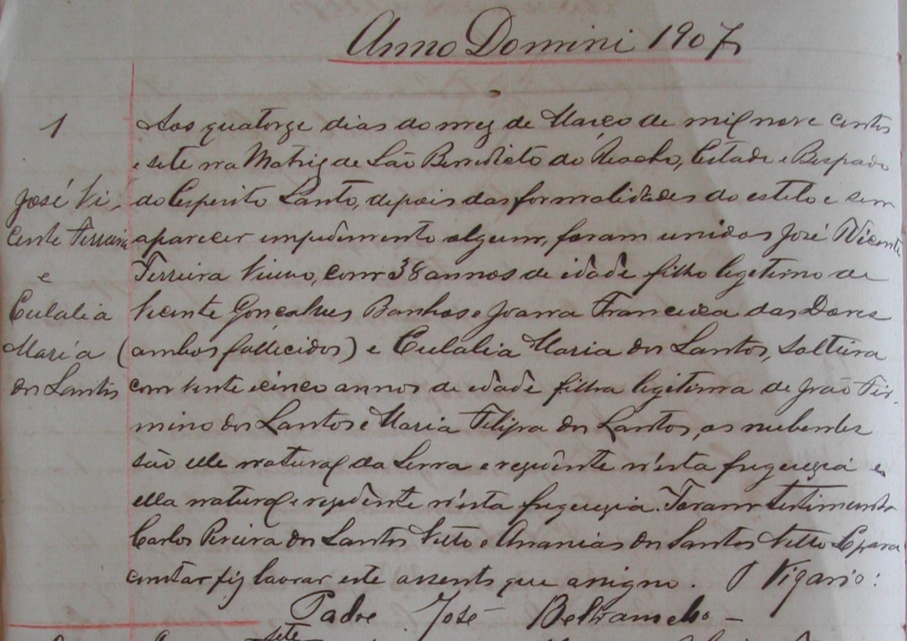 Anno Domini 1907
1
José Vi-
cente Ferreira
e
Eulalia
Maria
dos Santos
Aos quatorze dias do mez de Março de mil nove centos
e sete na Matriz de São Benedicto do Riacho, Estado e Bispado
do Espirito Santo, depois das formalidades do estilo e sem
aparecer impedimento algum, foram unidos José Vicente
Ferreira Viuvo, com 38 annos de idade filho legitimo de
Vicente Gonçalves Banhos e Joanna Francisca das Dores
(ambos fallecidos) e Eulalia Maria dos Santos, solteira
com vinte e cinco annos de idade filha legitima de João Fir-
mino dos Santos e Maria Filipa dos Santos, os nubentes
são elle natural da Serra e residente n'esta freguezia e
ella natural e residente n'esta freguezia. Foram testimunhas
Carlos Pereira dos Santos Netto e Ananias dos Santos Netto E para
constar fiz lavrar este assento que assigno. O Vigario:
Padre José
sete